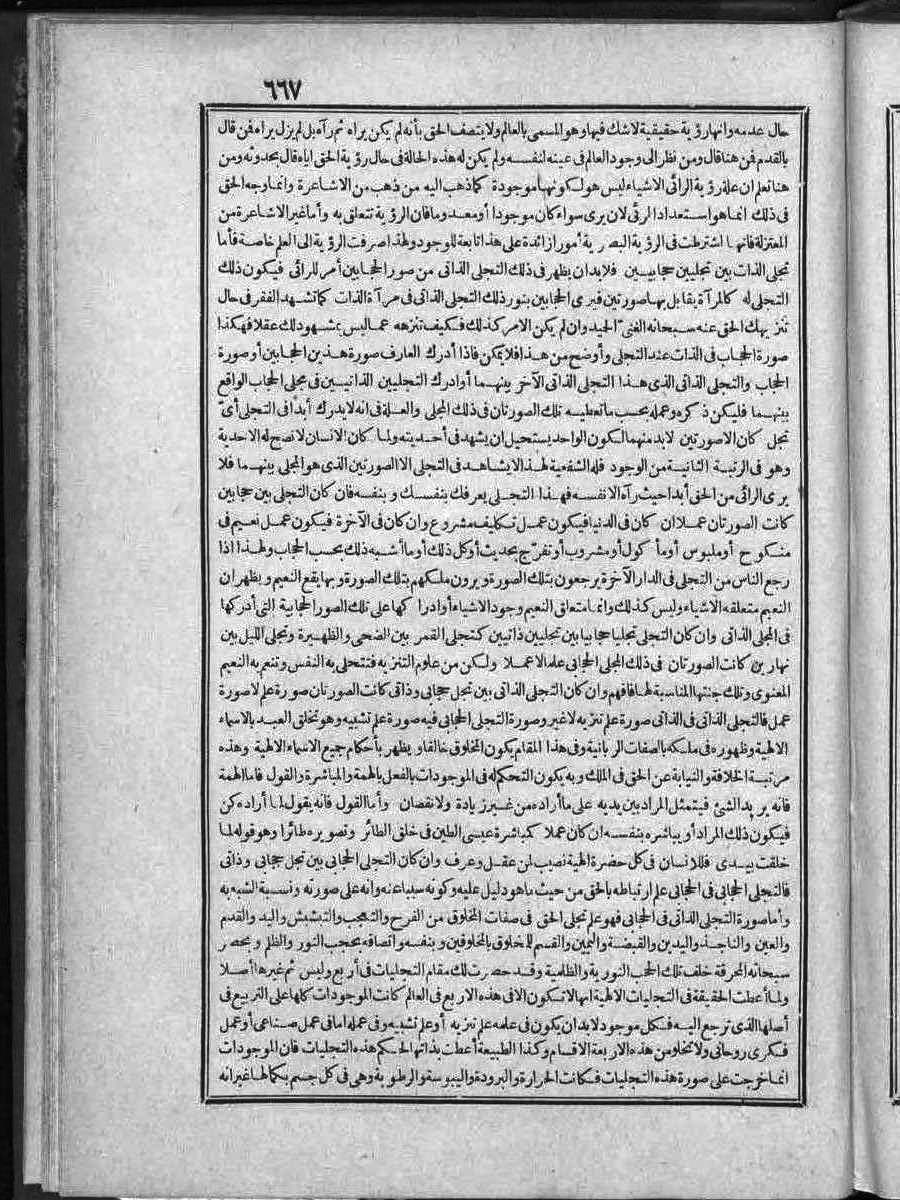 ٦٦٧
حال عدمه وانها رؤية حقيقية لاشك فيها وهو المسمى بالعالم ولا يتصف الحق بأنه لم يكن يراه ثم رآه بل لم يزل يراه فمن قال
بالقدم فمن هنا قال ومن نظر الى وجود العالم فى عينه لنفسه ولم يكن له هذه الحالة فى حال رؤية الحق اياه قال بحدوثه ومن
هنا تعلم ان علة رؤية الرائى الاشياء ليس هو لكونها موجودة كما ذهب اليه من ذهب من الاشاعرة وانما وجه الحق
فى ذلك انما هو استعداد المرئى لان يرى سواء كان موجودا أو معدوما فان الرؤية تتعلق به وأما غير الاشاعرة من
المعتزلة فانها اشترطت فى الرؤية البصرية أمورا زائدة على هذا تابعة للوجود ولهذا صرفت الرؤية الى العلم خاصة فأما
تجلى الذات بين تجليين حجابيين فلا بد ان يظهر فى ذلك التجلى الذاتى من صور الحجابين أمر للرائى فيكون ذلك
التجلى له كالمرآة يقابل بها صورتين فيرى الحجابين بنور ذلك التجلى الذاتى فى مرآة الذات كما تشهد الفقر فى حال
تنزيهك الحق عنه سبحانه الغنى الحميد وان لم يكن الامر كذلك فكيف تنزهه عما ليس بمشهود لك عقلا فهكذا
صورة الحجاب فى الذات عند التجلى وأوضح من هذا فلا يمكن فاذا أدرك العارف صورة هذين الحجابين أو صورة
الحجاب والتجلى الذاتى الذى هذا التجلى الذاتى الآخر بينهما أو ادرك التجليين الذاتيين فى مجلى الحجاب الواقع
بينهما فليكن ذكره وعمله بحسب ما تعطيه تلك الصورتان فى ذلك المجلى والعلة فى انه لا يدرك أبدا فى التجلى أىّ
تجل كان الا صورتين لا بد منهما لكون الواحد يستحيل ان يشهد فى أحديته ولما كان الانسان لا تصح له الاحدية
وهو فى الرتبة الثانية من الوجود فله الشفعية لهذا لا يشاهد فى التجلى الا الصورتين الذى هو المجلى بينهما فلا
يرى الرائى من الحق أبدا حيث رآه الا نفسه فهذا التجلى يعرفك بنفسك وبنفسه فان كان التجلى بين حجابين
كانت الصورتان عملا ان كان فى الدنيا فيكون عمل تكليف مشروع وان كان فى الآخرة فيكون عمل نعيم فى
منكوح أو ملبوس أو مأكول أو مشروب أو تفرّج بحديث أو كل ذلك أو ما أشبه ذلك بحسب الحجاب ولهذا اذا
رجع الناس من التجلى فى الدار الآخرة يرجعون بتلك الصورة ويرون ملكهم بتلك الصورة وبها يقع النعيم ويظهر ان
النعيم متعلقه الاشياء وليس كذلك وانما متعلق النعيم وجود الاشياء أو ادراكها على تلك الصور الحجابية التى أدركها
فى المجلى الذاتى وان كان التجلى تجليا حجابيا بين تجليين ذاتيين كتجلى القمر بين الضحى والظهيرة وتجلى الليل بين
نهارين كانت الصورتان فى ذلك المجلى الحجابى علما لا عملا ولكن من علوم التنزيه فتتحلى به النفس وتنعم به النعيم
المعنوى وتلك جنتها المناسبة لها فافهم وان كان التجلى الذاتى بين تجل حجابى وذاتى كانت الصورتان صورة علم لا صورة
عمل فالتجلى الذاتى فى الذاتى صورة علم تنزيه لا غير وصورة التجلى الحجابى فيه صورة علم تشبيه وهو تخلق العبد بالاسماء
الالهية وظهوره فى ملكه بالصفات الربانية وفى هذا المقام يكون المخلوق خالقا ويظهر بأحكام جميع الاسماء الالهية وهذه
مرتبة الخلافة والنيابة عن الحق فى الملك وبه يكون التحكم له فى الموجودات بالفعل بالهمة والمباشرة والقول فاما الهمة
فانه يريد الشئ فيتمثل المراد بين يديه على ما أراده من غير زيادة ولا نقصان وأما القول فانه يقول لما أراده كن
فيكون ذلك المراد أو يباشره بنفسه ان كان عملا كمباشرة عيسى الطين فى خلق الطائر وتصويره طائرا وهو قوله لما
خلقت بيدى فللانسان فى كل حضرة الهية نصيب لمن عقل وعرف وان كان التجلى الحجابى بين تجل حجابى وذاتى
فالتجلى الحجابى فى الحجابى علم ارتباطه بالحق من حيث ما هو دليل عليه وكونه سببا عنه وانه على صورته ونسبة الشبه به
وأما صورة التجلى الذاتى فى الحجابى فهو علم تجلى الحق فى صفات المخلوق من الفرح والتعجب والتبشبش واليد والقدم
والعين والناجذ واليدين والقبضة واليمين والقسم للمخلوق بالمخلوقين وبنفسه واتصافه بحجب النور والظلم وبحصر
سبحاته المحرقة خلف تلك الحجب النورية والظلمية وقد حصرت لك مقام التجليات فى أربع وليس ثم غيرها أصلا
ولما أعطت الحقيقة فى التجليات الالهية انها لا تكون الا فى هذه الاربع فى العالم كانت الموجودات كلها على التربيع فى
أصلها الذى ترجع اليه فكل موجود لا بد ان يكون فى علمه علم تنزيه أو علم تشبيه وفى عمله اما فى عمل صناعى أو عمل
فكرى روحانى ولا تخلو من هذه الاربعة الاقسام وكذا الطبيعة أعطت بذاتها لحكم هذه التجليات فان الموجودات
انما خرجت على صورة هذه التجليات فكانت الحرارة والبرودة واليبوسة والرطوبة وهى فى كل جسم بكمالها غير انه